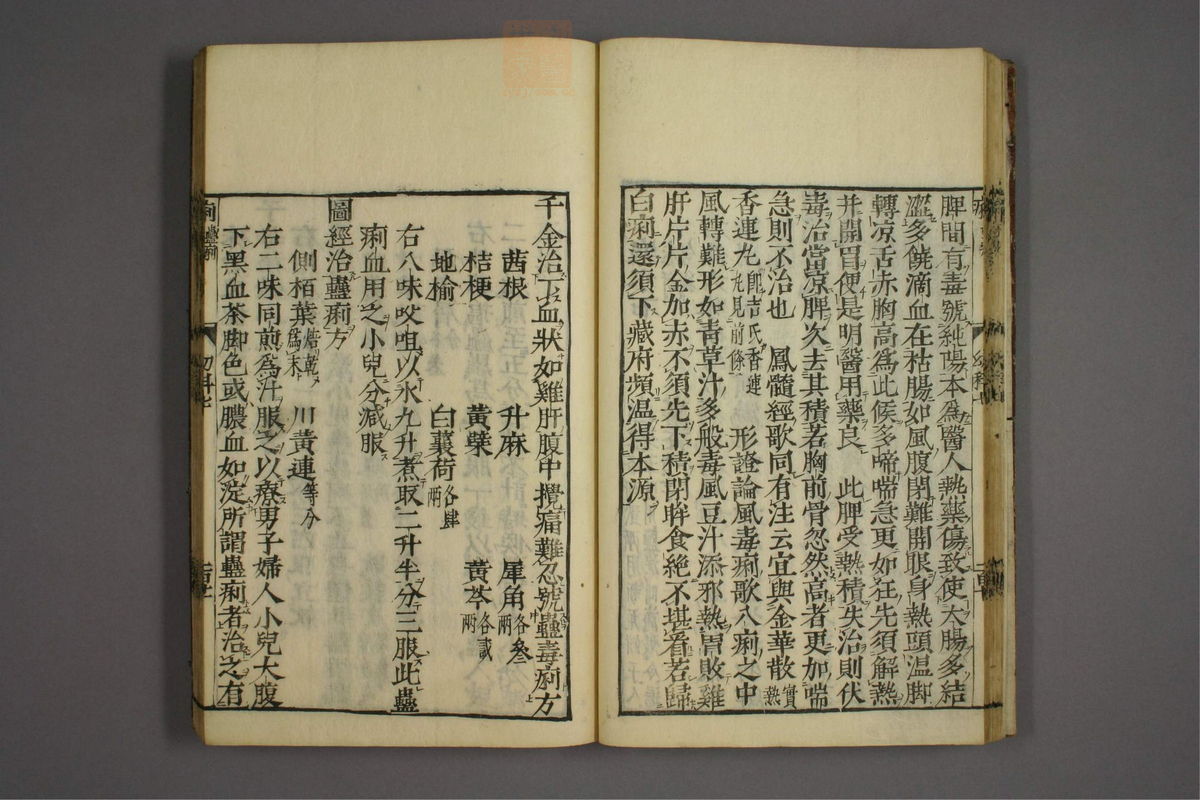 脾間有毒號純陽本為醫人熱藥傷致使大腸多結
澀多饒滴血在枯腸如風腹閉難開眼身熱頭温脚
轉凉舌赤胸高為此候多啼喘急更如狂先須解熱
并開胃便是明醫用藥良 此脾受熱積失治則伏
毒治當凉脾次去其積若胸前骨忽然高者更加喘
急則不治也 鳳髓經歌同有注云宜與金華散實熱
香連丸即吉氏香連丸見前條 形證論風毒痢歌八痢之中
風轉難形如青草汁多般毒風豆汁添邪熱胃敗雞
肝片片金加赤不須先下積閉眸食絶不堪看若歸
白痢還須下藏府頻温得本源
千金治下血狀如雞肝腹中攪痛難忍號蠱毒痢方
茜根 升麻 犀角各叄兩
桔梗 黃蘗 黃芩各貳兩
地榆 白蘘荷各肆兩
右八味㕮咀以水九升煮取二升半分三服此蠱
痢血用之小兒分減服
圖經治蠱痢方
側栢葉焙乾為末 川黃連等分
右二味同煎為汁服之以療男子婦人小兒大腹
下黑血茶脚色或膿血如淀所謂蠱痢者治之有